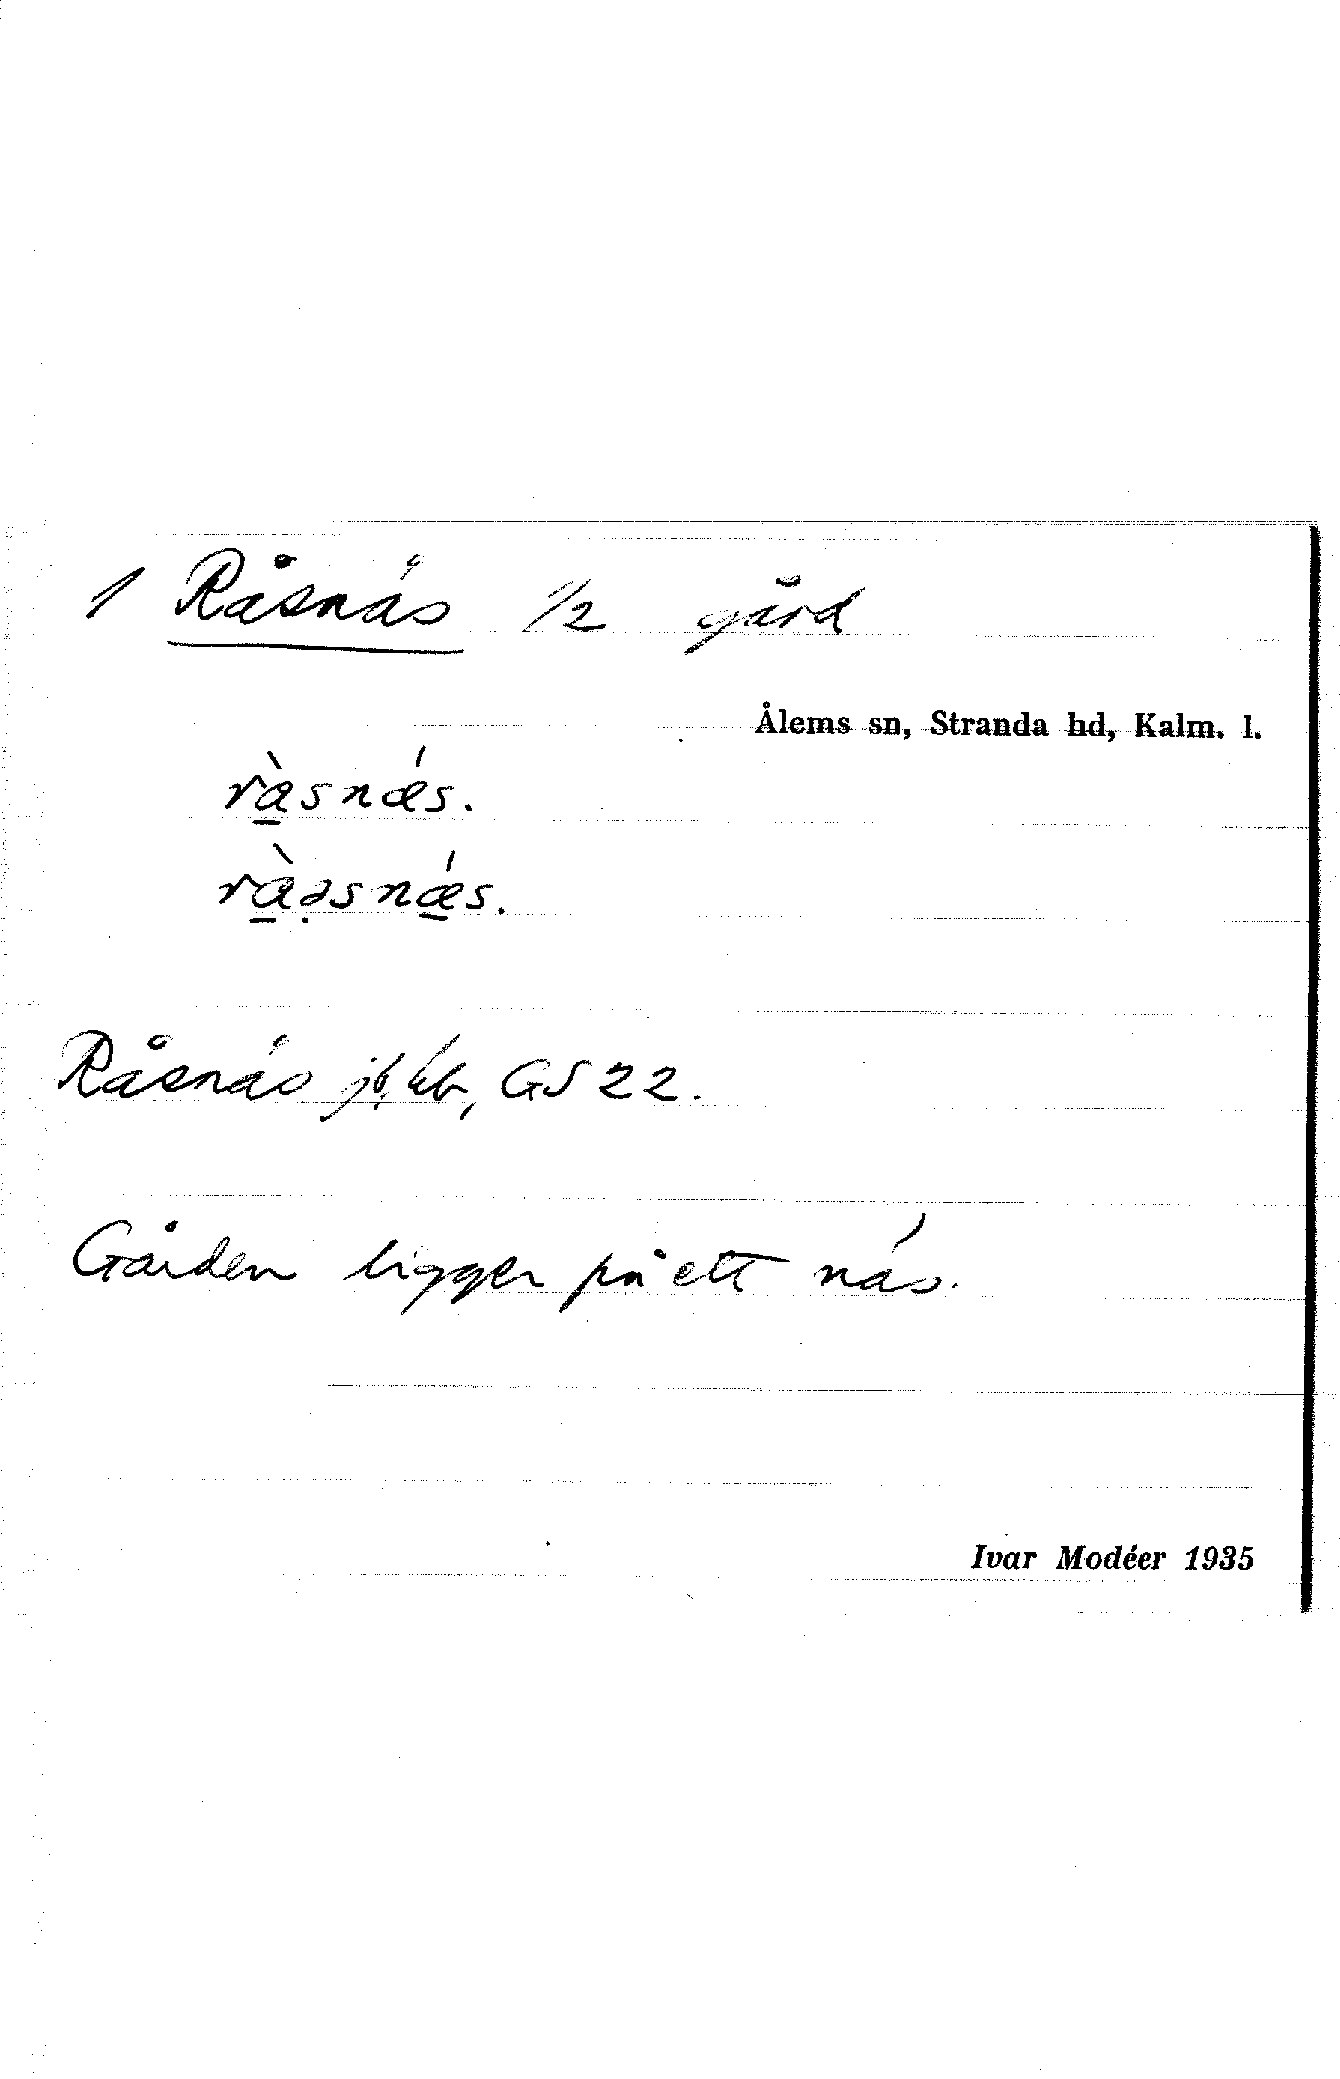 1 Råsnäs 1/2 gård
Ålems sn, Stranda hd, Kalm. l.
rà̱snǽs.
rà̱ə̣snǽ̱s.
Råsnäs jb, kb, GS 22.
Gården ligger på ett näs.
Ivar Modéer 1935